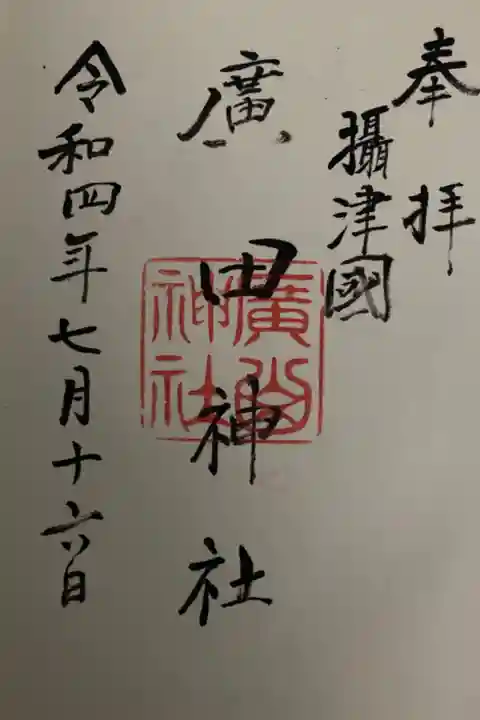 奉拝
攝津國
廣田神社
廣田
神社
令和四年七月十六日